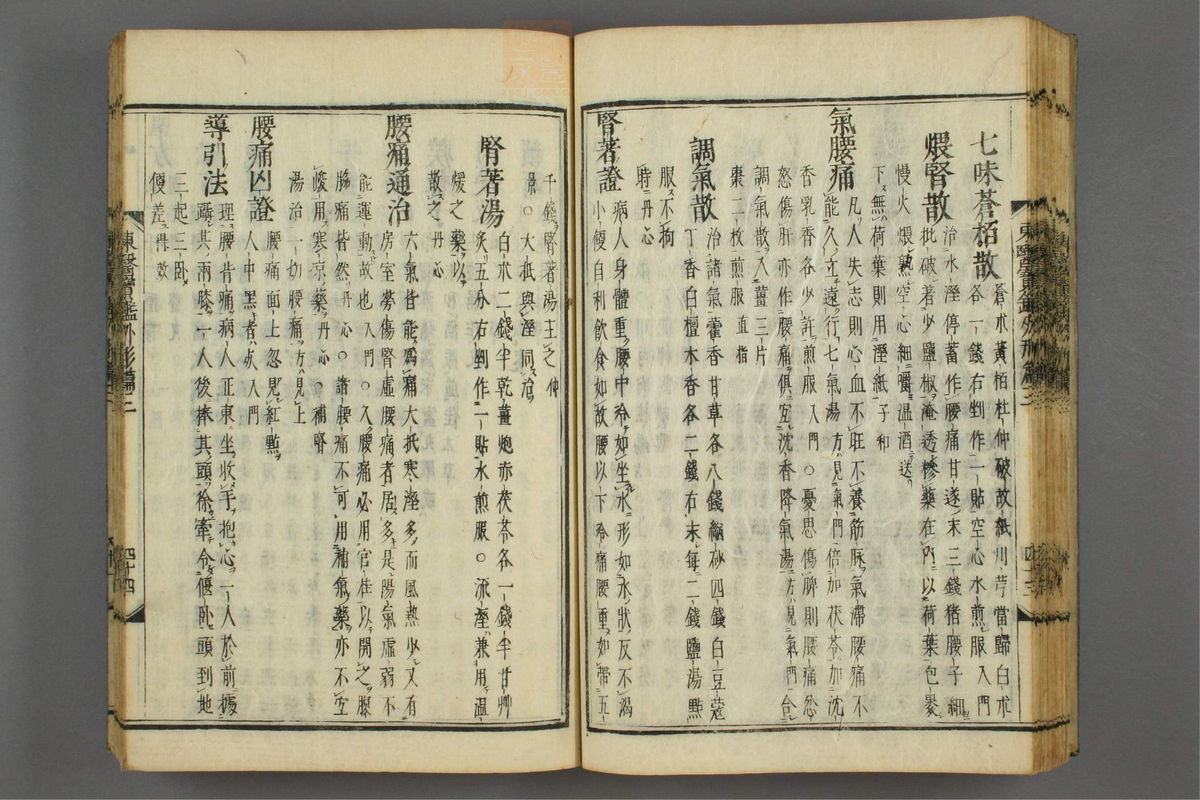 七味蒼栢散 蒼朮黃栢杜仲破故紙川芎當歸白朮
各一錢右剉作一貼空心水煎服入門
煨腎散 治水溼停蓄作腰痛甘遂末三錢猪腰子細
批破著少鹽椒淹透糝藥在內以荷葉包裹
慢火煨熟空心細嚼溫酒送
下無荷葉則用溼紙子和
氣腰痛 凡人失志則心血不旺不養筋脉氣滯腰痛不
能久立遠行七氣湯方見氣門倍加茯苓加沈
香乳香各少許煎服入門○憂思傷脾則腰痛忿
怒傷肝亦作腰痛俱宜沈香降氣湯方見氣門合
調氣散入薑三片
棗二枚煎服直指
調氣散 治諸氣藿香甘草各八錢縮砂四錢白豆蔲
丁香白檀木香各二錢右末每二錢鹽湯點
服不拘
時丹心
腎著證 病人身體重腰中冷如坐水形如水狀反不渴
小便自利飮食如故腰以下冷痛腰重如帶五
千錢腎著湯主之仲
景○大抵與溼同治
腎著湯 白朮二錢半乾薑炮赤茯苓各一錢半甘艸
灸五分右剉作一貼水煎服○流溼兼用溫
煖之藥以
散之丹心
腰痛通治 六氣皆能爲痛大抵寒溼多而風熱少又有
房室勞傷腎虛腰痛者居多是陽氣虛弱不
能運動故也入門○久腰痛必用官桂以開之腹
脇痛皆然丹心○諸腰痛不可用補氣藥亦不宜
峻用寒凉藥丹心○補腎
湯治一切腰痛方見上
腰痛凶證 腰痛面上忽見紅點
人中黑者死入門
導引法 理腰背痛病人正東坐收手抱心一人於前據
躡其兩膝一人後捧其頭徐牽令偃臥頭到地
三起三臥
便差得效
東醫寶鑑外形篇三
四十四